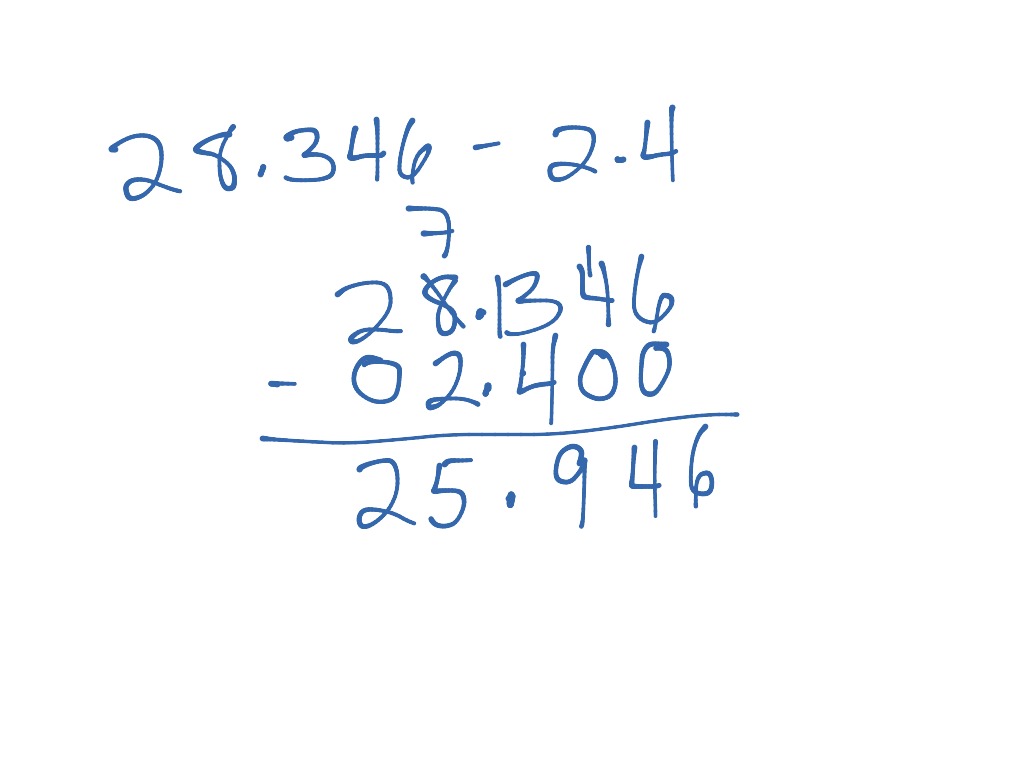 28.346 - 2.4
7
28.1346
- 02.400
25.946